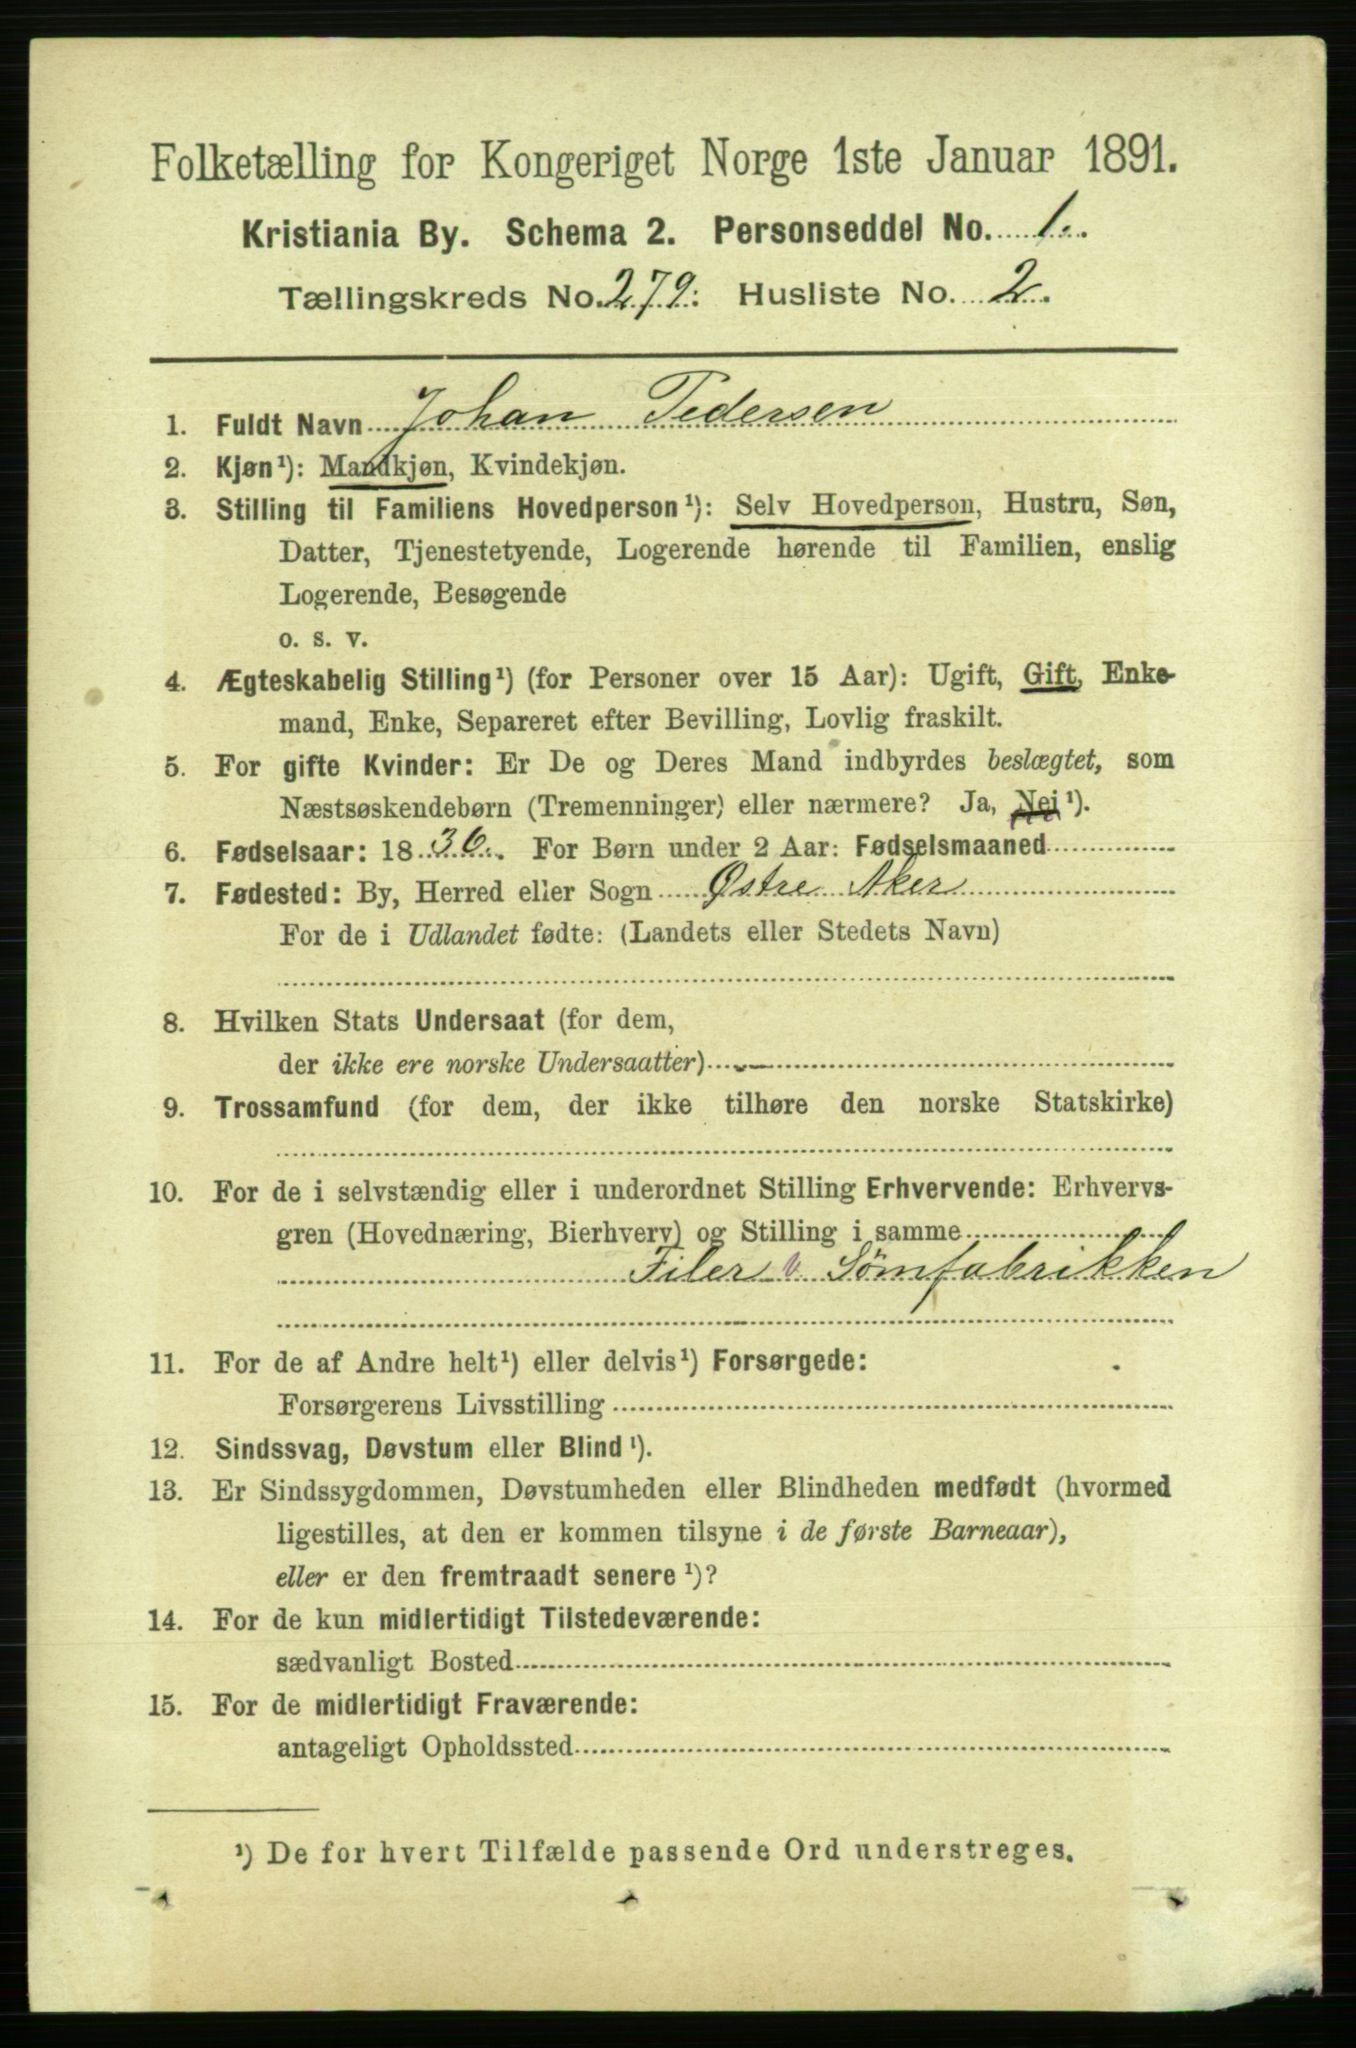 Folketælling for Kongeriget Norge 1ste Januar 1891.
Kristiania By. Schema 2. Personseddel No. 1.
Tællingskreds No. 279. Husliste No. 2.
1. Fuldt Navn Johan Pedersen
2. Kjøn¹): Mandkjøn, Kvindekjøn.
3. Stilling til Familiens Hovedperson¹): Selv Hovedperson, Hustru, Søn,
Datter, Tjenestetyende, Logerende hørende til Familien, enslig
Logerende, Besøgende
o. s. v.
4. Ægteskabelig Stilling¹) (for Personer over 15 Aar): Ugift, Gift, Enke-
mand, Enke, Separeret efter Bevilling, Lovlig fraskilt.
5. For gifte Kvinder: Er De og Deres Mand indbyrdes beslægtet, som
Næstsøskendebørn (Tremenninger) eller nærmere? Ja, Nei¹).
6. Fødselsaar: 1836. For Børn under 2 Aar: Fødselsmaaned
7. Fødested: By, Herred eller Sogn Østre Aker
For de i Udlandet fødte: (Landets eller Stedets Navn)
8. Hvilken Stats Undersaat (for dem,
der ikke ere norske Undersaatter)
9. Trossamfund (for dem, der ikke tilhøre den norske Statskirke)
10. For de i selvstændig eller i underordnet Stilling Erhvervende: Erhvervs-
gren (Hovednæring, Bierhverv) og Stilling i samme
Filer v Sømfabrikken
11. For de af Andre helt¹) eller delvis¹) Forsørgede:
Forsørgerens Livsstilling
12. Sindssvag, Døvstum eller Blind¹).
13. Er Sindssygdommen, Døvstumheden eller Blindheden medfødt (hvormed
ligestilles, at den er kommen tilsyne i de første Barneaar),
eller er den fremtraadt senere¹)?
14. For de kun midlertidigt Tilstedeværende:
sædvanligt Bosted
15. For de midlertidigt Fraværende:
antageligt Opholdssted
¹) De for hvert Tilfælde passende Ord understreges.